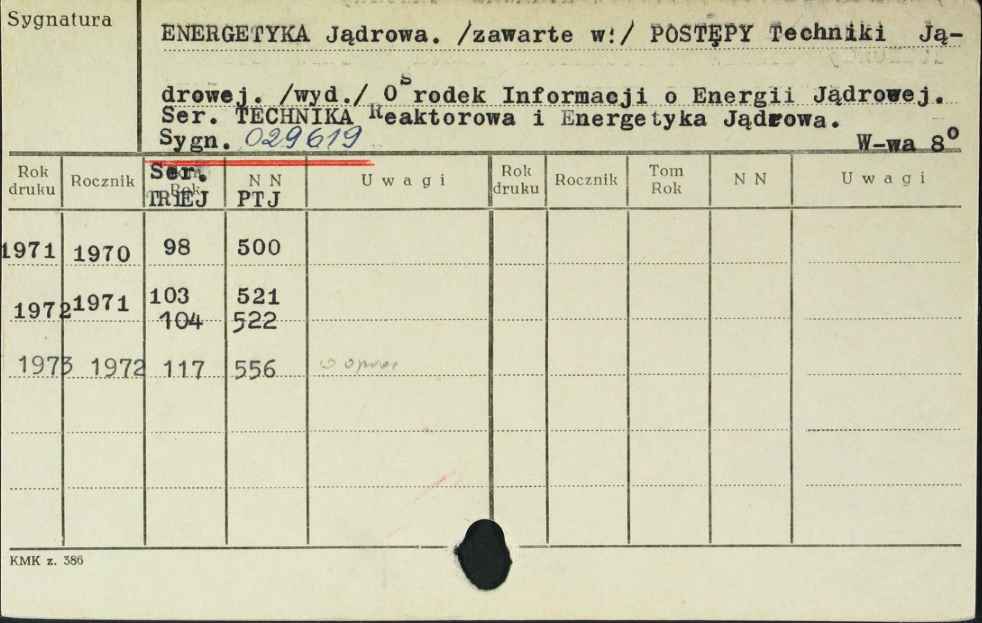 Sygnatura
ENERGETYKA Jądrowa. /zawarte w:/ POSTĘPY Techniki Ją-
drowej. /wyd./ Osrodek Informacji o Energii Jądrowej.
Ser. TECHNIKA Reaktorowa i Energetyka Jądrowa.
Sygn. 029619 W-wa 8º
Rok druku Rocznik Ser. TRIEJ N N PTJ Uwagi Rok druku Rocznik Tom Rok N N Uwagi
1971 1970 98 500
1972 1971 103 521
104 522
1973 1972 117 556
KMK z. 386